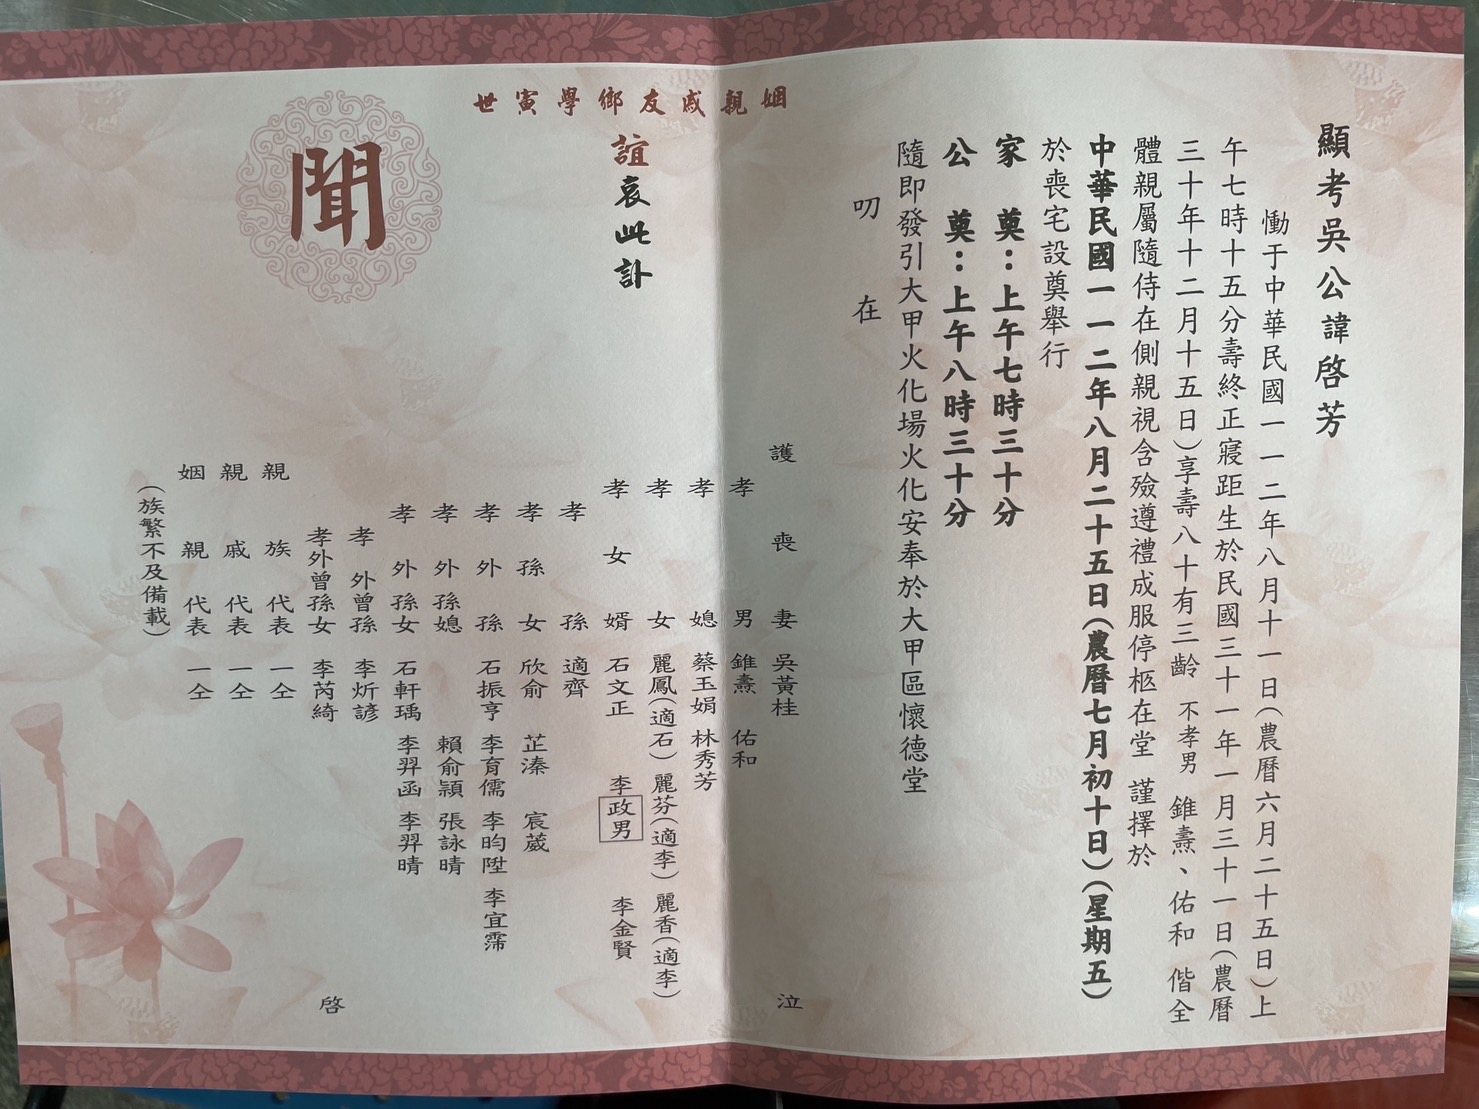 顯考吳公諱啓芳
慟于中華民國一一二年八月十一日(農曆六月二十五日)上
午七時十五分壽終正寢距生於民國三十一年一月三十一日(農曆
三十年十二月十五日)享壽八十有三齡 不孝男 錐燾、佑和 偕全
體親屬隨侍在側親視含殮遵禮成服停柩在堂 謹擇於
中華民國一一二年八月二十五日(農曆七月初十日)(星期五)
於喪宅設奠舉行
家奠：上午七時三十分
公奠：上午八時三十分
隨即發引大甲火化場火化安奉於大甲區懷德堂
叨在
姻親戚友鄉學寅世
誼哀此訃
聞
護喪妻 吳黃桂 泣
孝男 錐燾 佑和
孝媳 蔡玉娟 林秀芳
孝女 麗鳳(適石) 麗芬(適李) 麗香(適李)
孝女婿 石文正 李政男 李金賢
孝孫 適齊
孝孫女 欣俞 芷溱 宸葳
孝外孫 石振亨 李育儒 李昀陞 李宜霈
孝外孫媳 賴俞穎 張詠晴
孝外孫女 石軒瑀 李羿函 李羿晴
孝外曾孫 李炘諺
孝外曾孫女 李芮綺 啓
親族代表 一仝
親戚代表 一仝
姻親代表 一仝
(族繁不及備載)